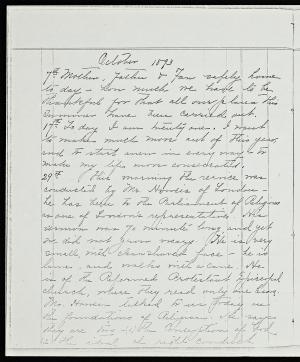 October 1893
7th Mother, Father & Fan safely home
to-day – How much we have to be
thankful for that all our plans this
summer have been carried out.
17th To-day I am twenty one. I want
to make much more out of this year,
and to start anew in every way & to
make my life more consecrated.
29th This morning the service was
conducted by Mr. of London –
he was here to the Parliament of Religions
as one of London's representatives. His
sermon was 70 minutes long and yet
we did not grow weary. He is very
small, with clean shaved face – he is
lame, and walks with a cane. He
is of the Reformed Protestant Episcopal
church, where they read only one lesson.
Mr. talked to us to-day on
the foundations of Religion. He says
they are two – (1) the Conceptions of God
is the ideal of right conduct